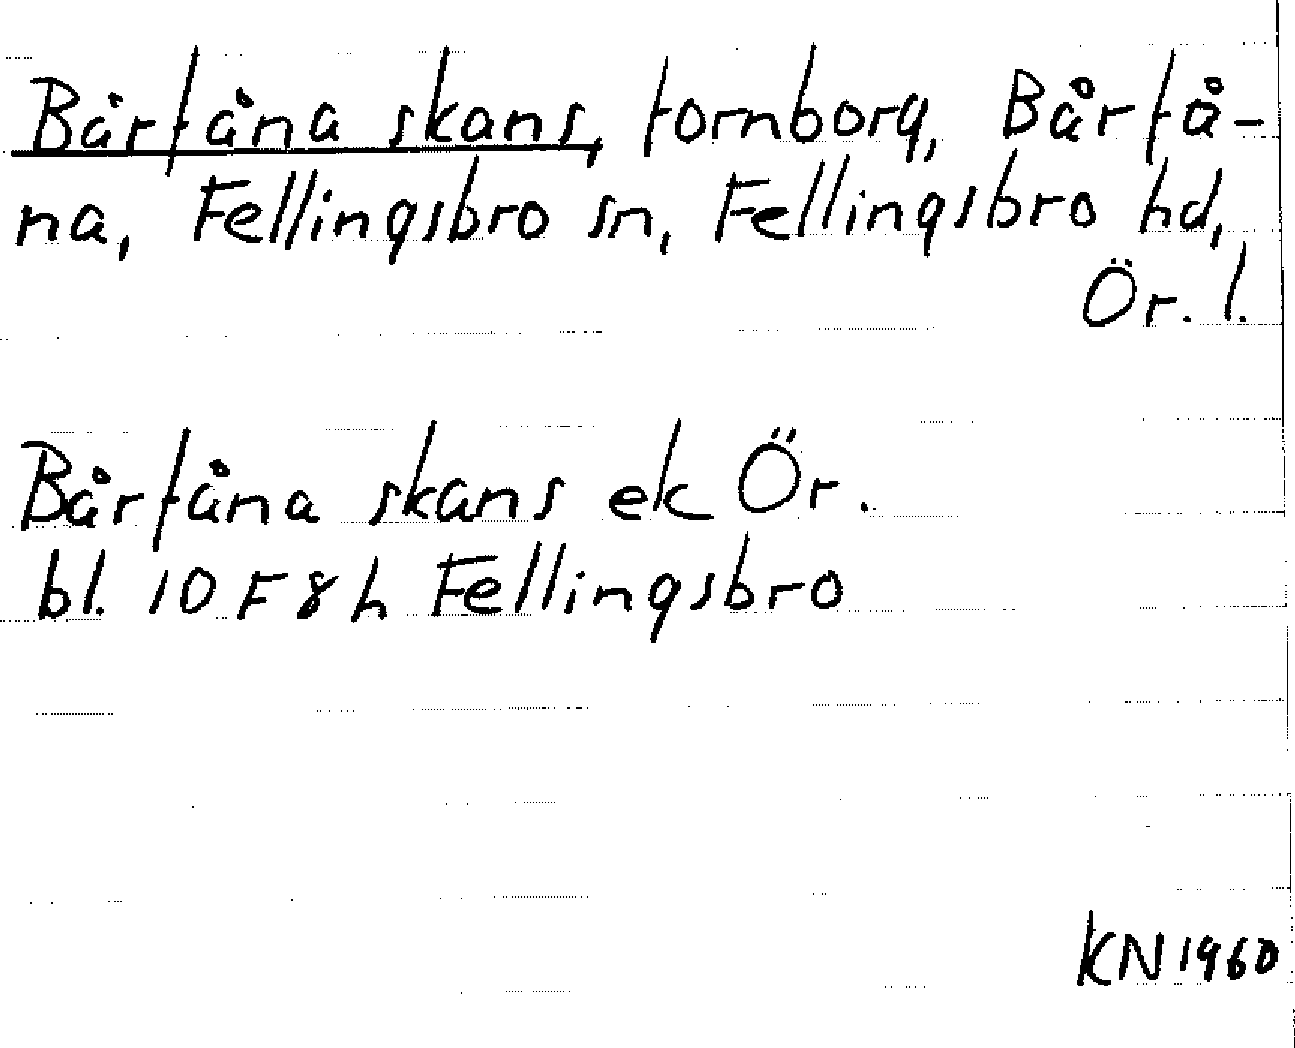 Bårfåna skans, fornborg, Bårfå-
na, Fellingsbro sn, Fellingsbro hd,
Ör. l.
Bårfåna skans ek Ör.
bl. 10 F 8 h Fellingsbro
KN 1960